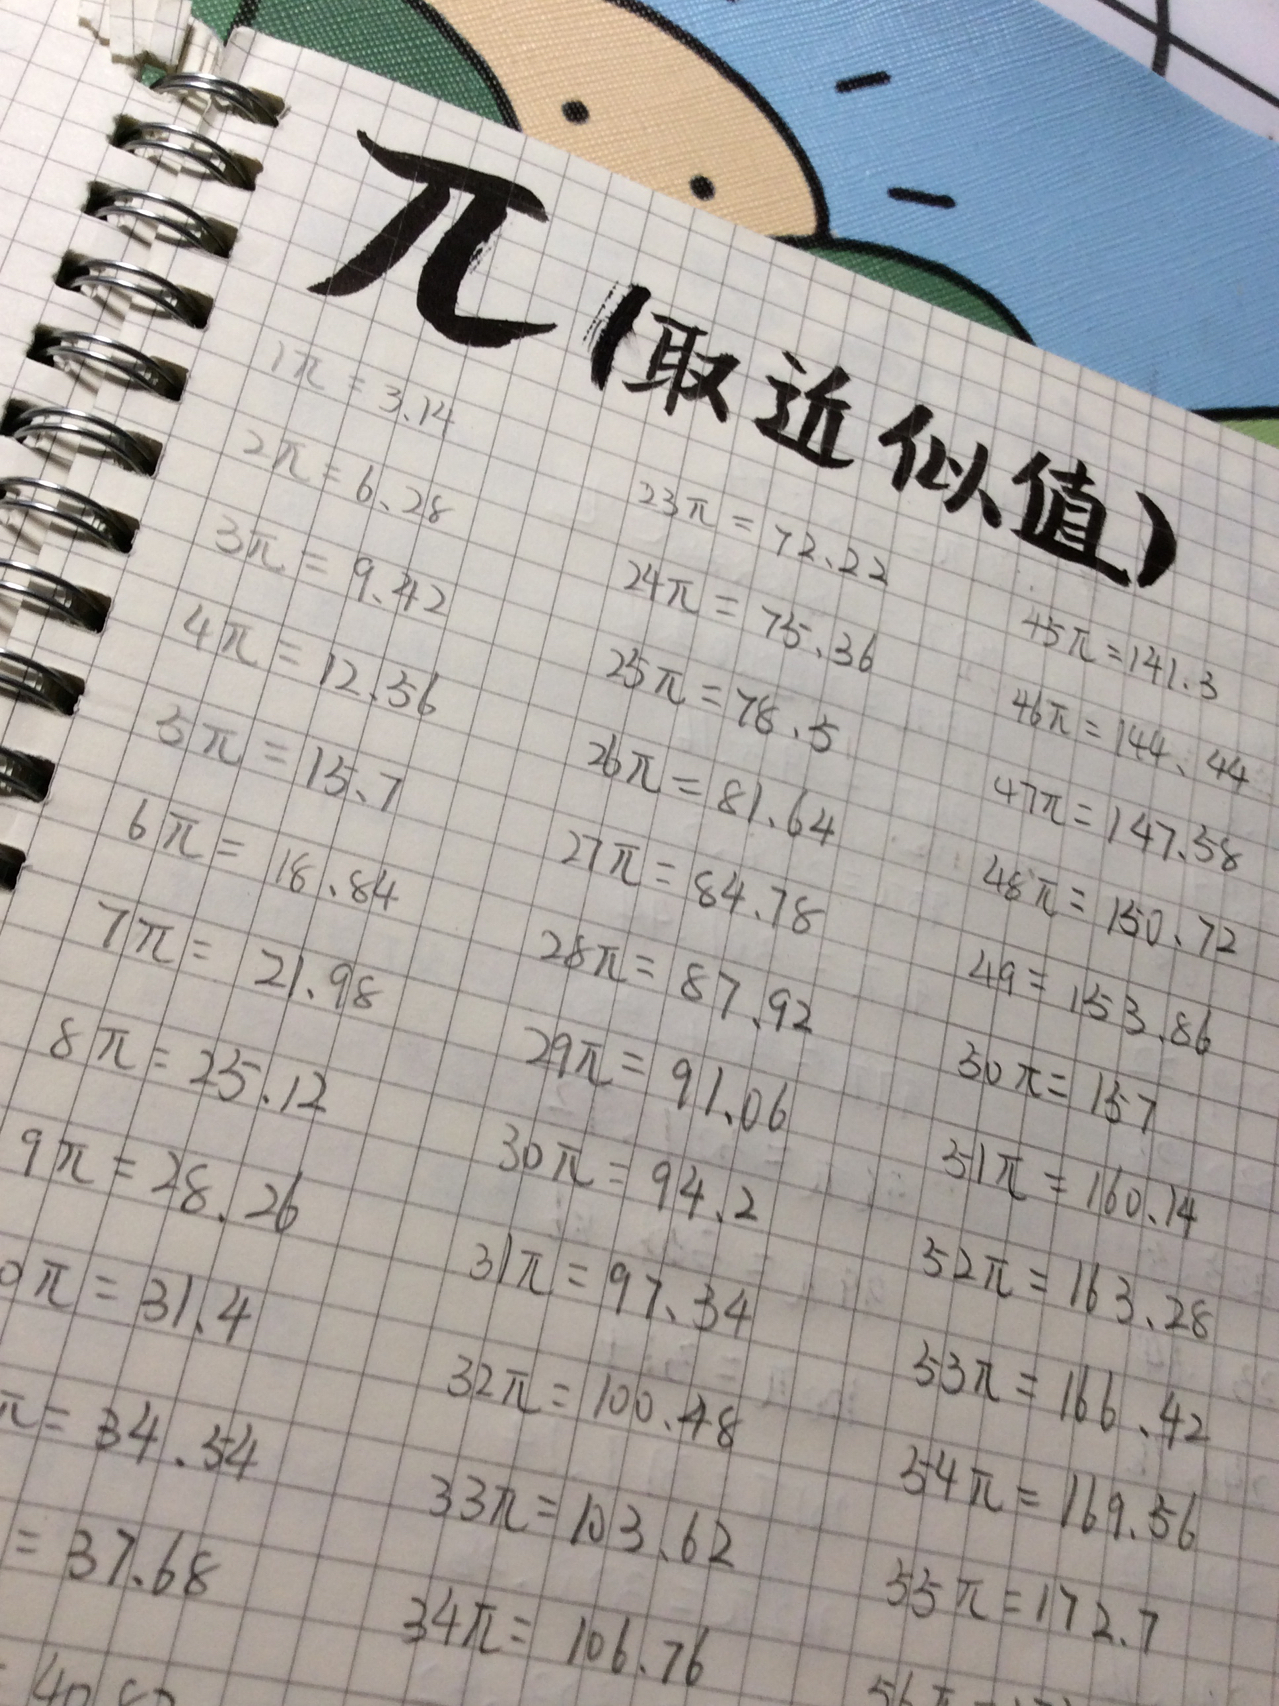 π(取近似值)
1π=3.14
2π=6.28
3π=9.42
4π=12.56
5π=15.7
6π=18.84
7π=21.98
8π=25.12
9π=28.26
0π=31.4
π=34.54
=37.68
23π=72.22
24π=75.36
25π=78.5
26π=81.64
27π=84.78
28π=87.92
29π=91.06
30π=94.2
31π=97.34
32π=100.48
33π=103.62
34π=106.76
45π=141.3
46π=144.44
47π=147.58
48π=150.72
49=153.86
50π=157
51π=160.14
52π=163.28
53π=166.42
54π=169.56
55π=172.7
56π